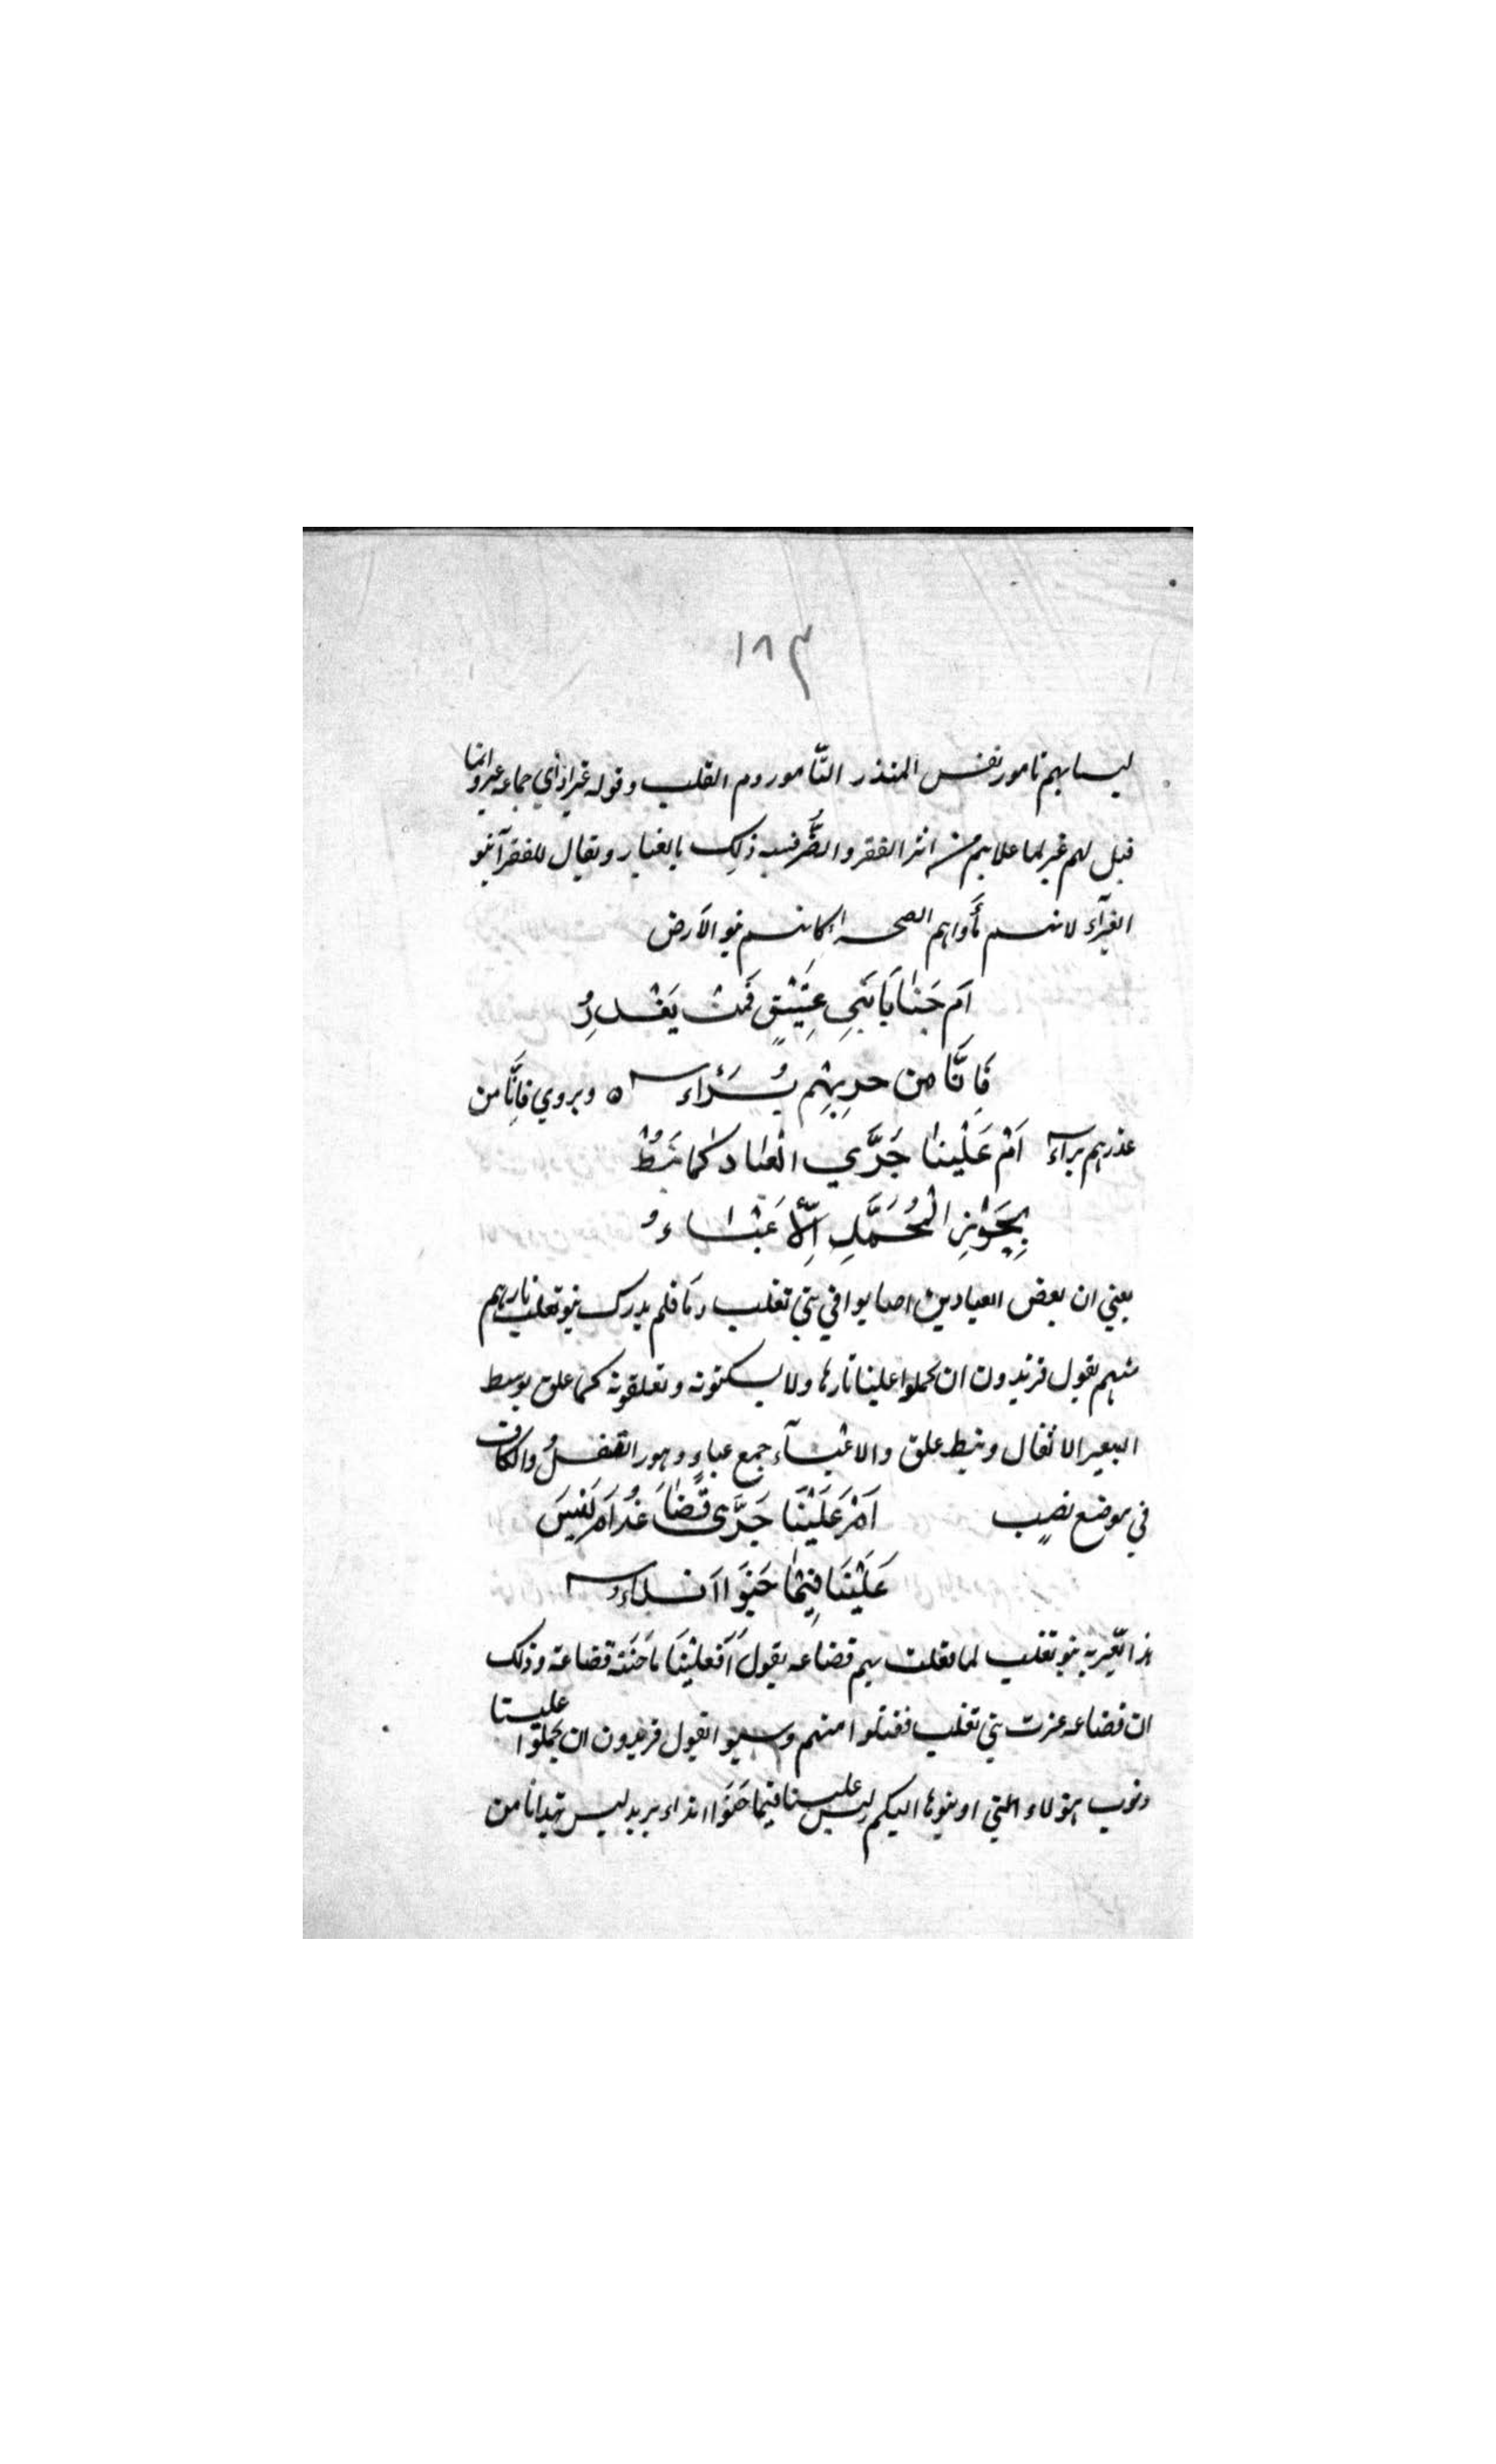 ١٨٣
ليسا بهم تامور نفس المنذر التّامور دم القلب وقوله غبراء اي جماعه غبر وانما
قيل لهم غبر لما علاهم من اثر الفقر والضُّر فشبه ذلك بالغبار ويقال للفقرآ بنو
الغبرآء لانهم مأواهم الصحرا كانهم بنو الارض
اَم جَنَايَا بَنِي عَتِيْقٍ فَمَنْ يَغْدِرُ
فَاِنَّا من حربِهِم بُرَءَاء ه ويروي فاِنَّا من
غدرهم براء اَمْ عَلَيْنا جَرَّي العباد كما نيطْ
بِجَوْنِ الْمُحَمَّلِ الأَعْبَاءُ
يعني ان بعض العباديين اصابوا في بني تغلب دمًا فلم يدرك بنو تغلب ثارهم
منهم يقول فتريدون ان تحملوا علينا ثارها ولا يسكتونه وتعلقونه كما علق بوسط
البعير الاثقال ونيط علق والاعبآء جمع عباءٍ وهو الثقلُ والكاف
في موضع نصب اَمْ عَلَيْنَا جَرَّى قُضَاعَةُ اَمْ لَيْسَ
عَلَيْنَا فِيْمَا جَنَوْا اَنْدَاءُ
هذا تعيير به بنو تغلب لما فعلت بهم قضاعه يقول اَفعلَيْنَا مَا جَنَتْه قضاعة وذلك
ان قضاعه غزت بني تغلب فقتلوا منهم وسبوا يقول فتريدون ان تحملوا علينا
ذنوب هولاء التي اذنبوها اليكم ليس علينا فيما جَنَوا انداء يريد ليس يندانا من